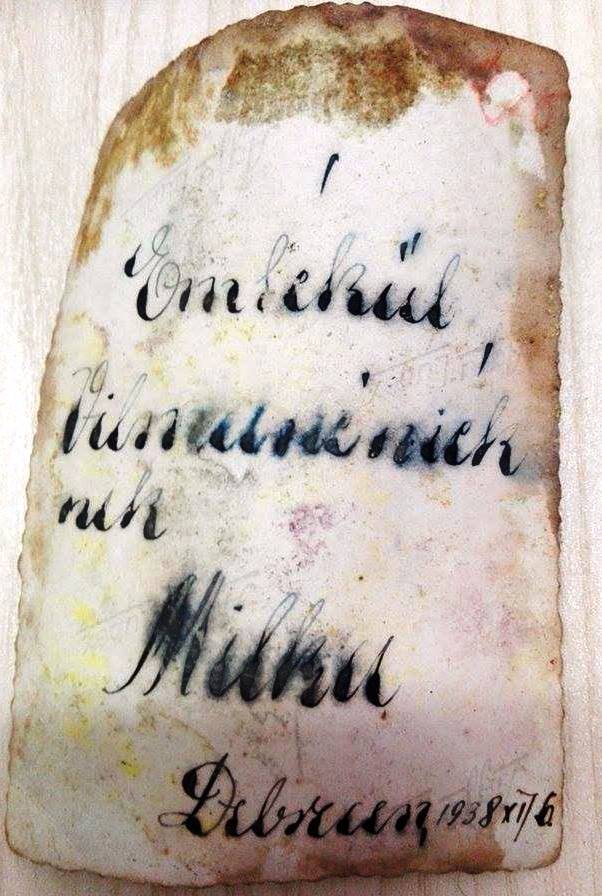 Emlékül
Vilma néniék
nek
Milka
Debrecen 1938 XI/6.